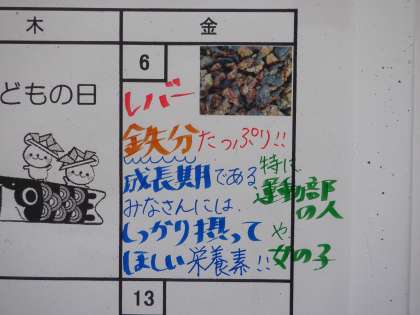 木
金
どもの日
6
レバー
鉄分たっぷり!!
成長期である
みなさんには、
しっかり摂って
ほしい栄養素!!
特に
運動部
の人
や
女の子
13